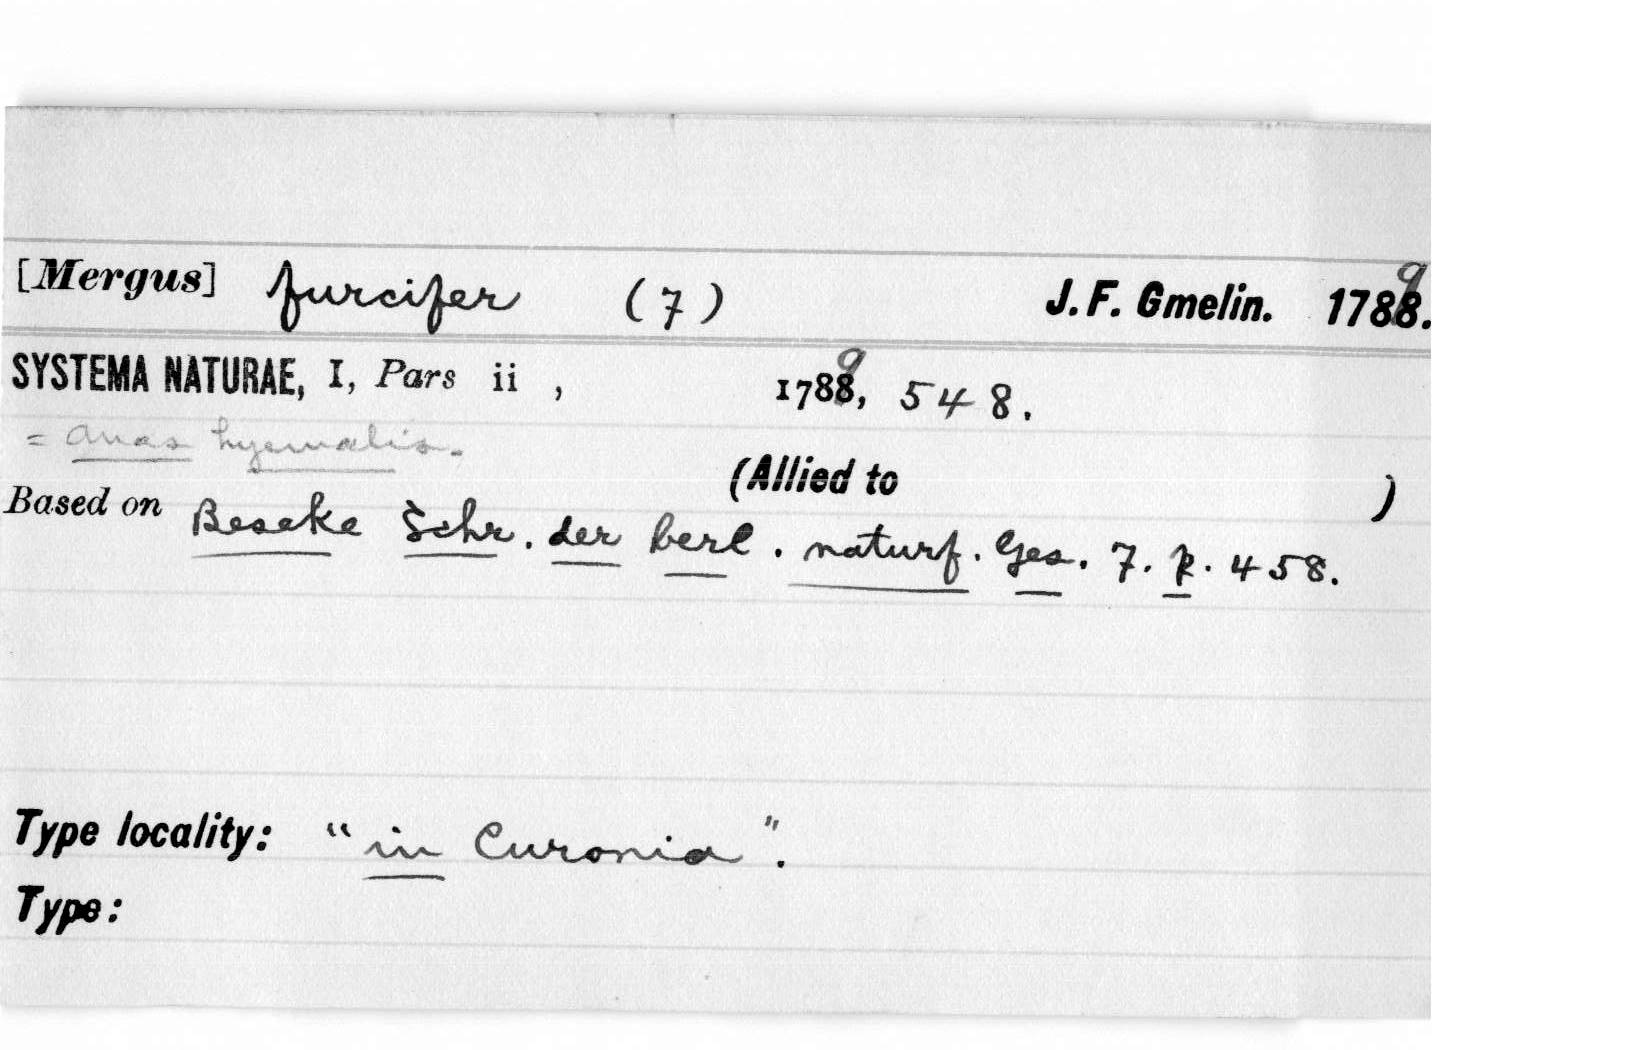 [Mergus] furcifer (7) J. F. Gmelin. 1789.
SYSTEMA NATURAE, I, Pars ii , 1789, 548.
= Anas hyemalis.
(Allied to )
Based on Beseke Schr. der berl. naturf. Ges. 7. p. 458.
Type locality: "in Curonia".
Type: